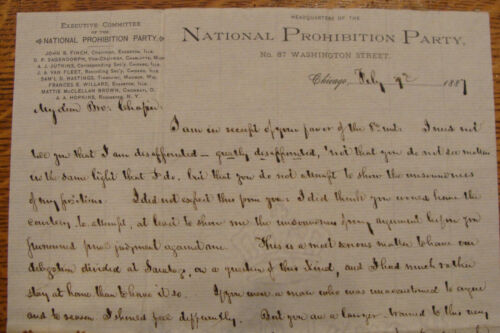 EXECUTIVE COMMITTEE
OF THE
NATIONAL PROHIBITION PARTY.
JOHN B. FINCH, Chairman, Evanston, Ills.
A. A. HOPKINS, Rochester, N.Y.
FRANCES E. WILLARD, Evanston, Ills.
HEADQUARTERS OF THE
NATIONAL PROHIBITION PARTY,
No. 87 WASHINGTON STREET.
Chicago, July 9th 1887
My dear Bro. Chapin:
I am in receipt of your favor of the 8th inst. I need not
tell you that I am disappointed — greatly disappointed, not that you do not see matters
in the same light that I do, but that you do not attempt to show the unsoundness
of my positions. I did not expect this from you: I did think you would have the
courtesy to attempt, at least to show me the unsoundness of my argument before you
pronounced final judgment against me. This is a most serious matter to have our
delegation divided at Saratoga, on a question of this kind, and I had much rather
stay at home than to have it so. If you were a man who was unaccustomed to argue
and to reason I should feel differently. But you are a lawyer trained to this very